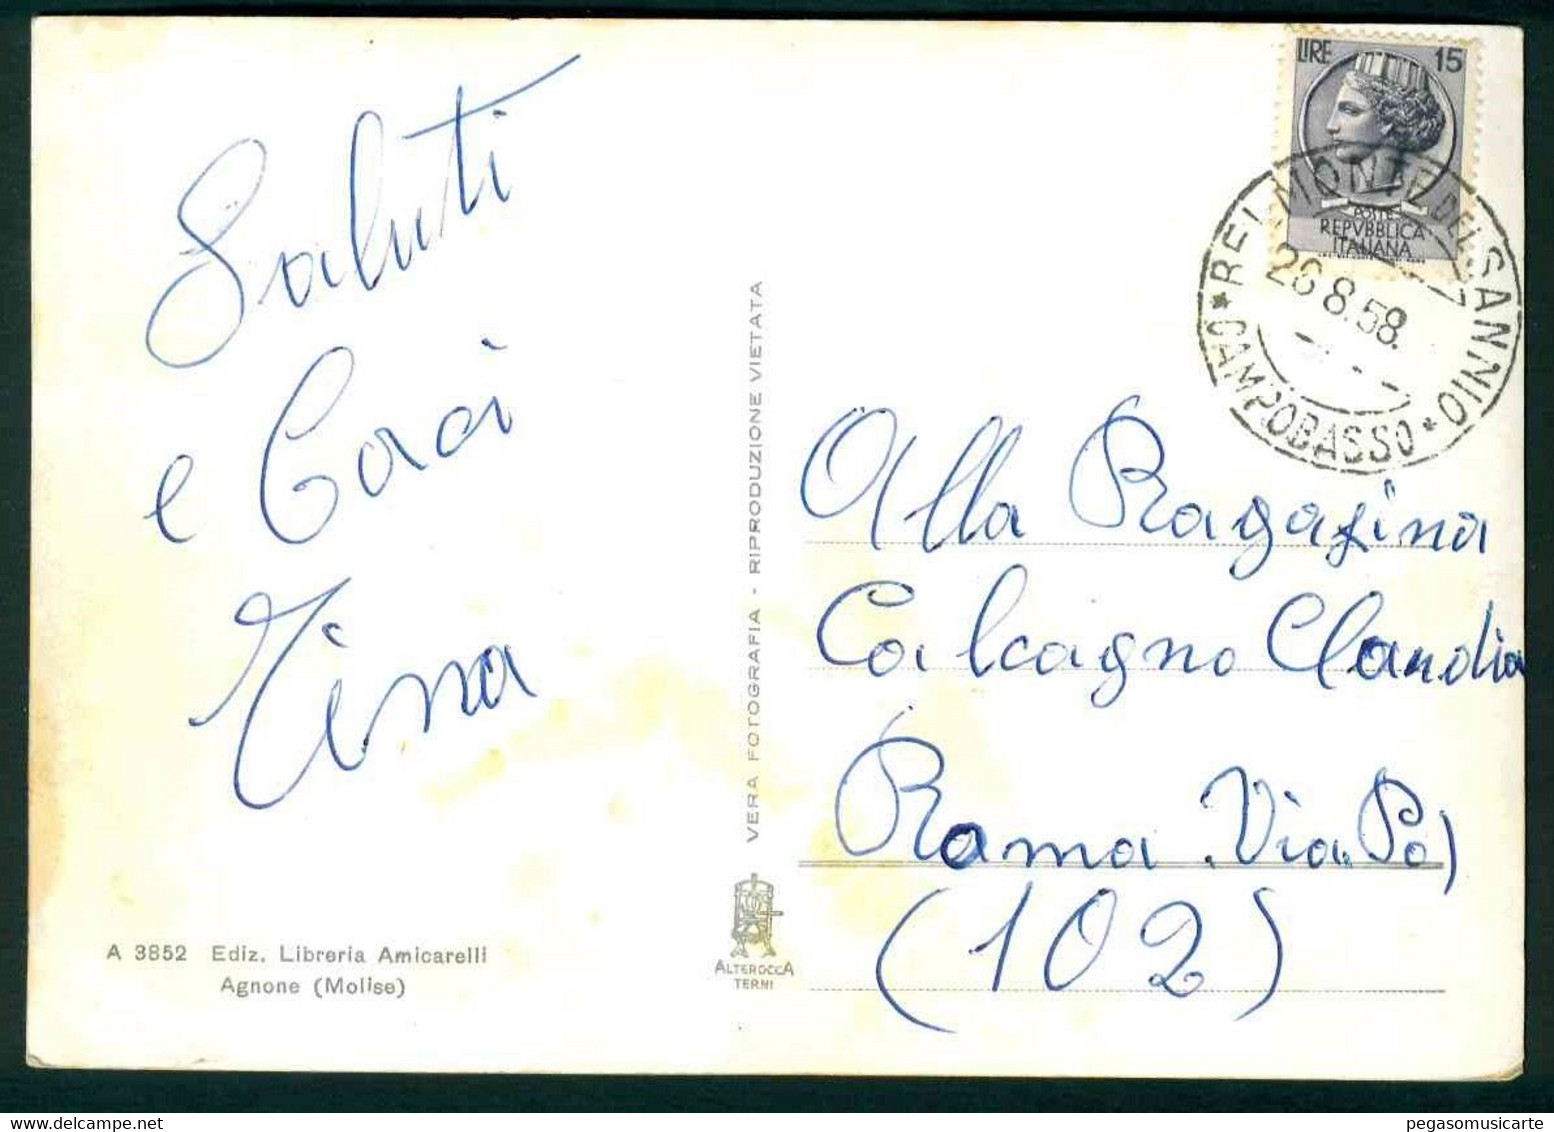 Saluti
e Baci
Tina
A 3852 Ediz. Libreria Amicarelli
Agnone (Molise)
VERA FOTOGRAFIA - RIPRODUZIONE VIETATA
ALTEROCCA
TERNI
LIRE 15
POSTE
REPVBBLICA
ITALIANA
BELMONTE DEL SANNIO
* CAMPOBASSO *
26.8.58.
Alla Ragazina
Calcagno Claudia
Roma . Via . Po)
(102)
pegasomusicarte@yahoo.it